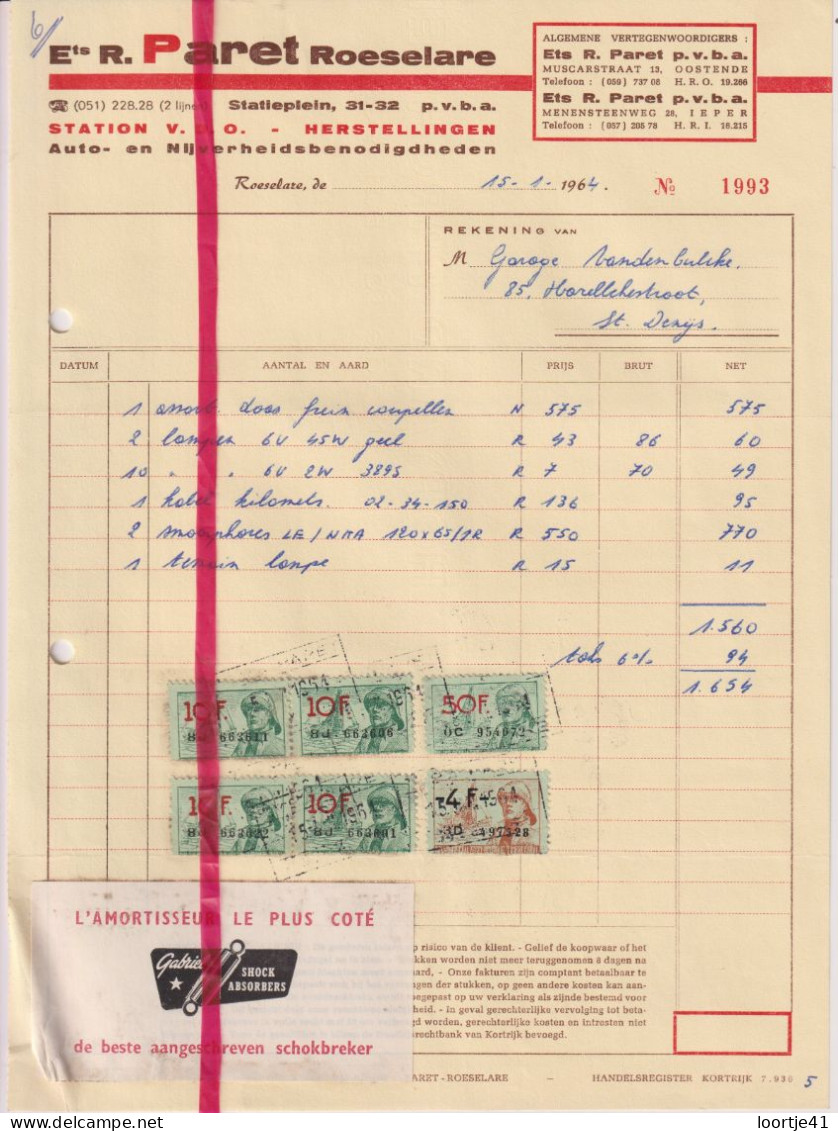 6/
Ets R. Paret Roeselare
(051) 228.28 (2 lijnen) Statieplein, 31-32 p.v.b.a.
STATION V. D. O. - HERSTELLINGEN
Auto- en Nijverheidsbenodigdheden
ALGEMENE VERTEGENWOORDIGERS :
Ets R. Paret p.v.b.a.
MUSCARSTRAAT 13, OOSTENDE
Telefoon : (059) 737 08 H. R. O. 19.266
Ets R. Paret p.v.b.a.
MENENSTEENWEG 28, IEPER
Telefoon : (057) 205 78 H. R. I. 16.215
Roeselare, de 15-1-1964. № 1993
REKENING VAN
M Garage Vandenbulcke.
85, Harelbekestraat,
St. Denijs.
DATUM AANTAL EN AARD PRIJS BRUT NET
1 assort. doos frein coupellen N 575 575
2 lampen 6V 45W geel R 43 86 60
10 " " 6V 2W 3895 R 7 70 49
1 kabel kilomets. 02-34-150 R 136 95
2 LE/NRA 120x65/1R R 550 770
1 lampe R 15 11
1.560
taks 6% 94
1.654
10F. 10F. 50F.
8d 663611 8d 663606 OC 954672
10F. 10F. 4F
8d 663622 8d 663601 497328
L'AMORTISSEUR LE PLUS COTÉ
Gabriel
SHOCK
ABSORBERS
de beste aangeschreven schokbreker
p risico van de klient. - Gelief de koopwaar of het
kkan worden niet meer teruggenomen 8 dagen na
aard, - Onze fakturen zijn comptant betaalbaar te
ngen der stukken, op geen andere kosten kan aan-
egepast op uw verklaring als zijnde bestemd voor
heid. - In geval gerechterlijke vervolging tot beta-
gd worden, gerechterlijke kosten en intresten niet
rechtbank van Kortrijk bevoegd.
ARET-ROESELARE — HANDELSREGISTER KORTRIJK 7.930 5
www.delcampe.net
loortje41